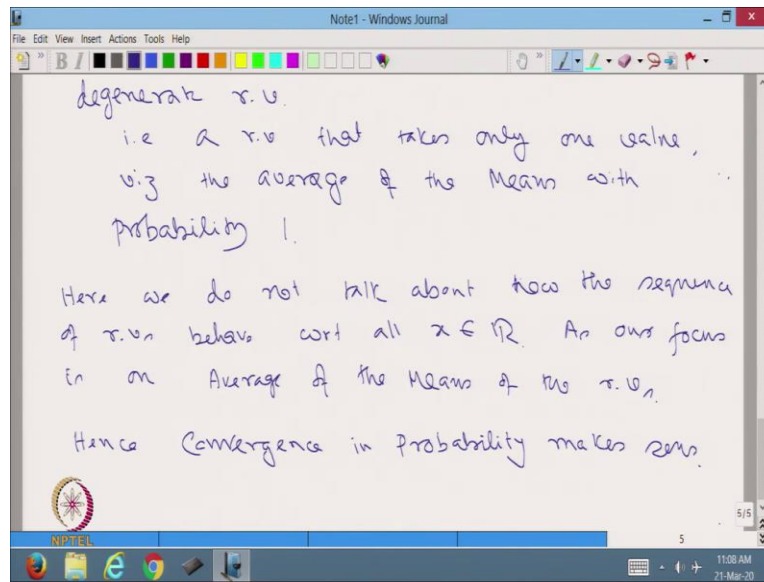 Note1 - Windows Journal
File Edit View Insert Actions Tools Help
degenerate r.v.
i.e a r.v that takes only one value,
viz the average of the Means with
probability 1.
Here we do not talk about how the sequence
of r.vs behave wrt all x ∈ ℝ. As our focus
is on Average of the Means of the r.vs.
Hence Convergence in Probability makes sens
NPTEL
5/5
5
11:08 AM
21-Mar-20